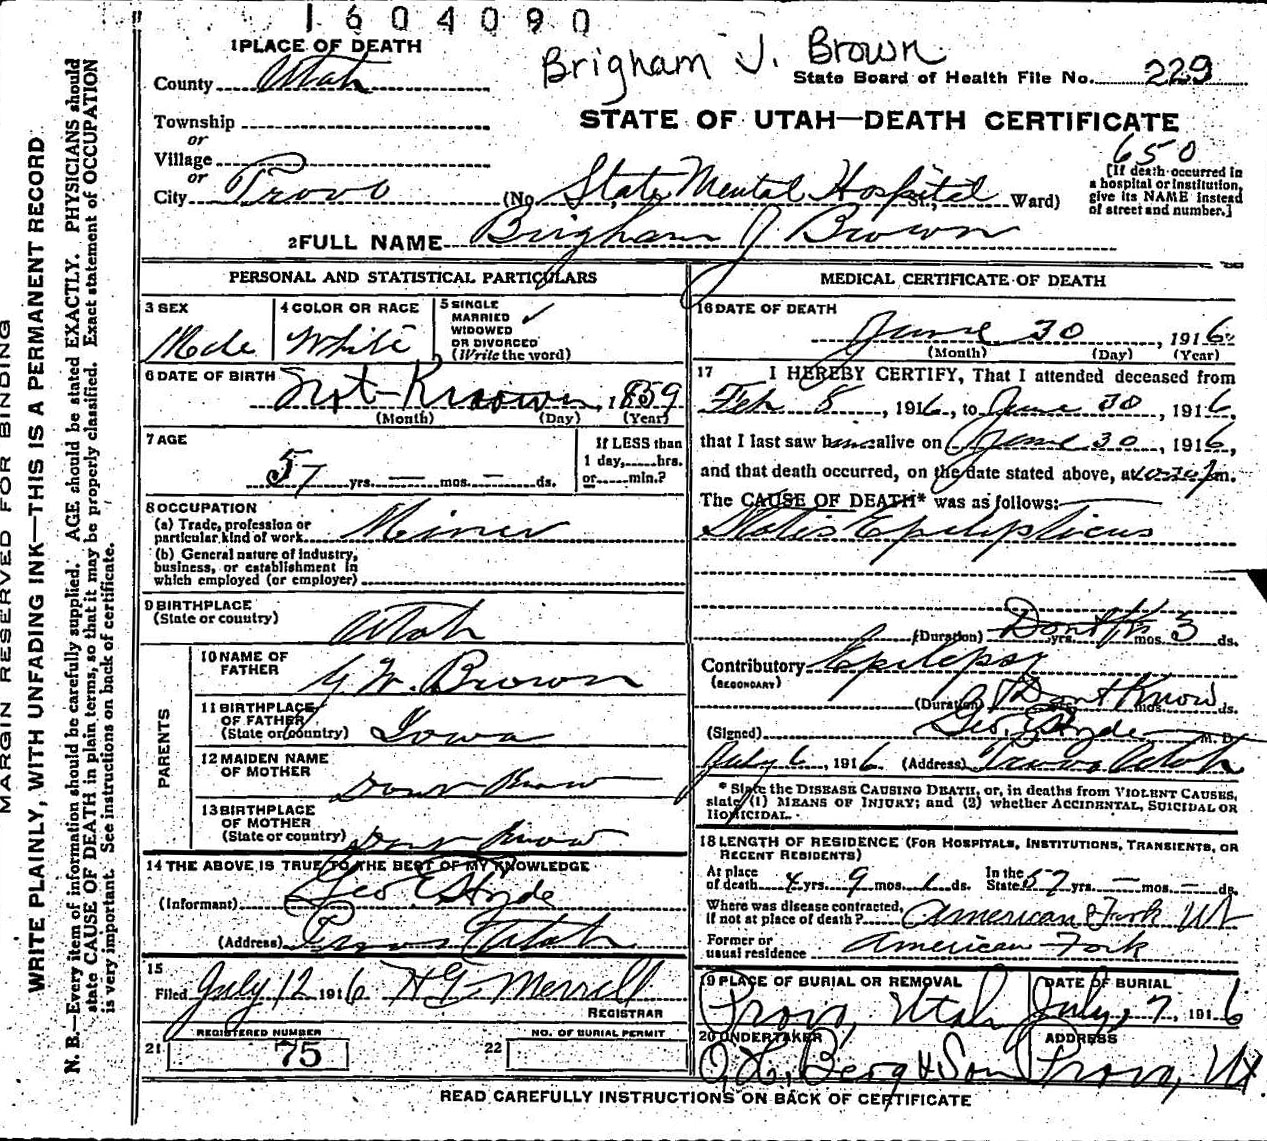 1604090
Brigham J. Brown
1 PLACE OF DEATH
County Utah
State Board of Health File No. 229
Township
STATE OF UTAH—DEATH CERTIFICATE
or
Village
650
or
City Provo (No. State Mental Hospital St., Ward)
[If death occurred in
a hospital or institution,
give its NAME instead
of street and number.]
2 FULL NAME Brigham J Brown
PERSONAL AND STATISTICAL PARTICULARS
3 SEX
Male
4 COLOR OR RACE
White
5 SINGLE
MARRIED ✓
WIDOWED
OR DIVORCED
(Write the word)
6 DATE OF BIRTH Not Known, 1859
(Month) (Day) (Year)
7 AGE
57 yrs. — mos. — ds.
If LESS than
1 day, hrs.
or min.?
8 OCCUPATION
(a) Trade, profession or
particular kind of work Meiner
(b) General nature of industry,
business, or establishment in
which employed (or employer)
9 BIRTHPLACE
(State or country) Utah
PARENTS
10 NAME OF
FATHER G W. Brown
11 BIRTHPLACE
OF FATHER
(State or country) Iowa
12 MAIDEN NAME
OF MOTHER Dont Know
13 BIRTHPLACE
OF MOTHER
(State or country) Dont Know
14 THE ABOVE IS TRUE TO THE BEST OF MY KNOWLEDGE
(Informant) Geo E Hyde
(Address) Provo Utah
15
Filed July 12 1916 H G Merrill
REGISTRAR
REGISTERED NUMBER
21 75
NO. OF BURIAL PERMIT
22
MEDICAL CERTIFICATE OF DEATH
16 DATE OF DEATH
June 30, 1916
(Month) (Day) (Year)
17 I HEREBY CERTIFY, That I attended deceased from
Feb 8, 1916, to June 30, 1916,
that I last saw him alive on June 30, 1916,
and that death occurred, on the date stated above, at m.
The CAUSE OF DEATH* was as follows:
Statis Epilepticus
(Duration) yrs. mos. 3 ds.
Contributory Epilepsy
(SECONDARY)
(Duration) Dont Know mos. ds.
(Signed) Geo. E Hyde M. D.
July 6, 1916 (Address) Provo Utah
* State the DISEASE CAUSING DEATH, or, in deaths from VIOLENT CAUSES,
state (1) MEANS OF INJURY; and (2) whether ACCIDENTAL, SUICIDAL OR
HOMICIDAL.
18 LENGTH OF RESIDENCE (FOR HOSPITALS, INSTITUTIONS, TRANSIENTS, OR
RECENT RESIDENTS)
At place
of death 4 yrs. 9 mos. 1 ds.
In the
State 57 yrs. — mos. — ds.
Where was disease contracted,
if not at place of death? American Fork Ut
Former or
usual residence American Fork
19 PLACE OF BURIAL OR REMOVAL
Provo, Utah
DATE OF BURIAL
July, 7, 1916
20 UNDERTAKER
O. H. Berg & Son
ADDRESS
Provo, Ut
READ CAREFULLY INSTRUCTIONS ON BACK OF CERTIFICATE
MARGIN RESERVED FOR BINDING
WRITE PLAINLY, WITH UNFADING INK—THIS IS A PERMANENT RECORD
N. B.—Every item of information should be carefully supplied. AGE should be stated EXACTLY. PHYSICIANS should
state CAUSE OF DEATH in plain terms, so that it may be properly classified. Exact statement of OCCUPATION
is very important. See instructions on back of certificate.